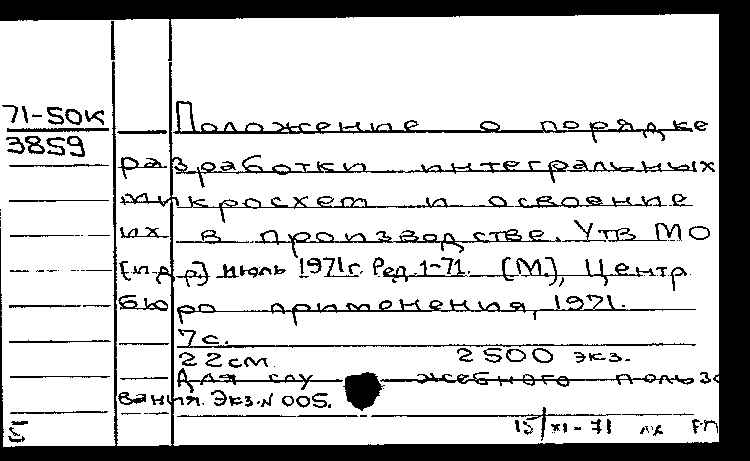 71-50К
3859
Положение о порядке
разработки интегральных
микросхем и освоение
их в производстве. Утв МО
[и др] июль 1971г. Ред. 1-71. [М.], Центр
бюро применения, 1971.
7с.
22см. 2500 экз.
Для служебного пользо
вания. Экз.N 005.
Б 15/XI-71